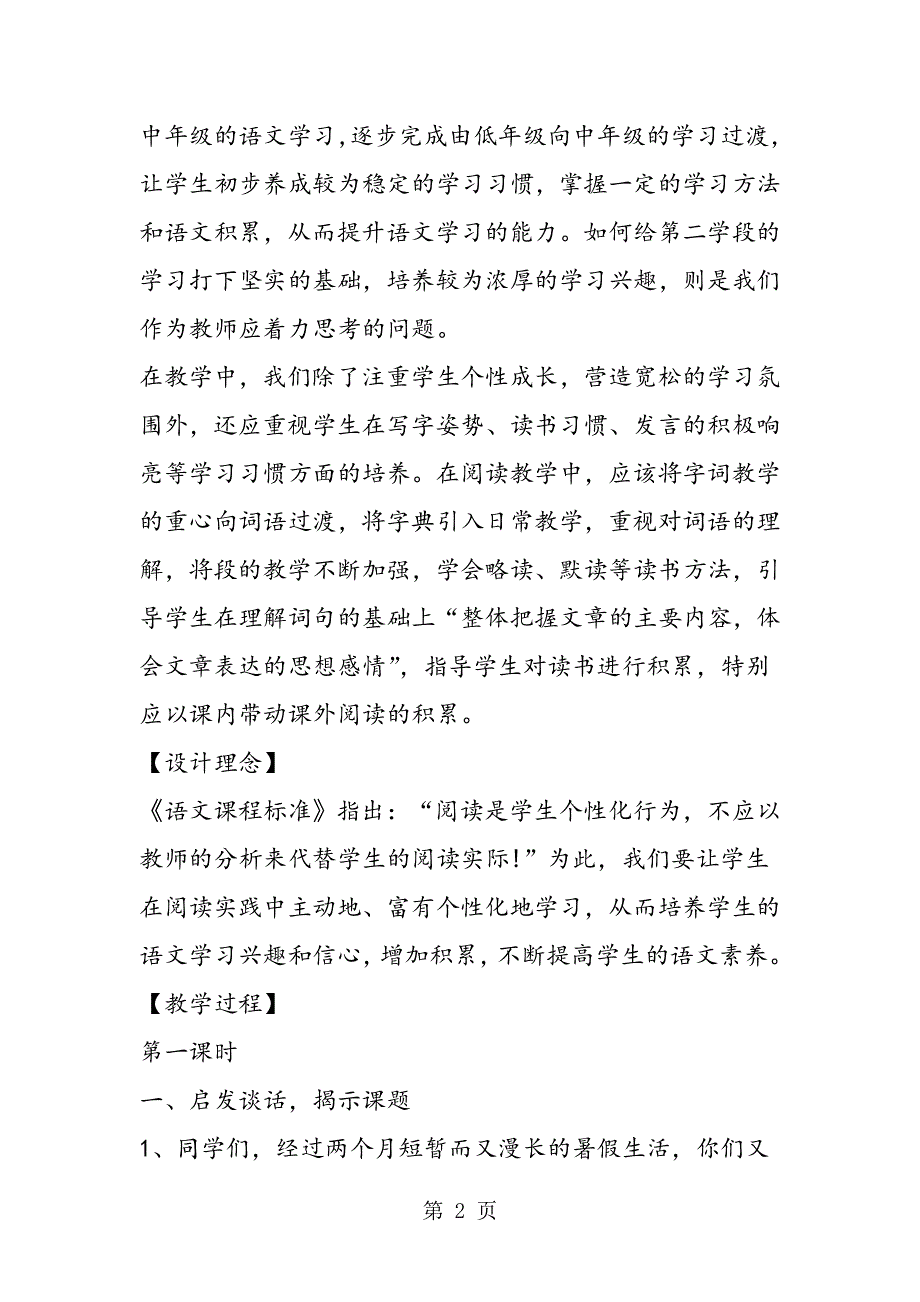 中年级的语文学习,逐步完成由低年级向中年级的学习过渡,
让学生初步养成较为稳定的学习习惯，掌握一定的学习方法
和语文积累，从而提升语文学习的能力。如何给第二学段的
学习打下坚实的基础，培养较为浓厚的学习兴趣，则是我们
作为教师应着力思考的问题。
在教学中，我们除了注重学生个性成长，营造宽松的学习氛
围外，还应重视学生在写字姿势、读书习惯、发言的积极响
亮等学习习惯方面的培养。在阅读教学中，应该将字词教学
的重心向词语过渡，将字典引入日常教学，重视对词语的理
解，将段的教学不断加强，学会略读、默读等读书方法，引
导学生在理解词句的基础上“整体把握文章的主要内容，体
会文章表达的思想感情”，指导学生对读书进行积累，特别
应以课内带动课外阅读的积累。
【设计理念】
《语文课程标准》指出：“阅读是学生个性化行为，不应以
教师的分析来代替学生的阅读实际!”为此，我们要让学生
在阅读实践中主动地、富有个性化地学习，从而培养学生的
语文学习兴趣和信心,增加积累,不断提高学生的语文素养。
【教学过程】
第一课时
一、启发谈话，揭示课题
1、同学们，经过两个月短暂而又漫长的暑假生活，你们又
第 2 页